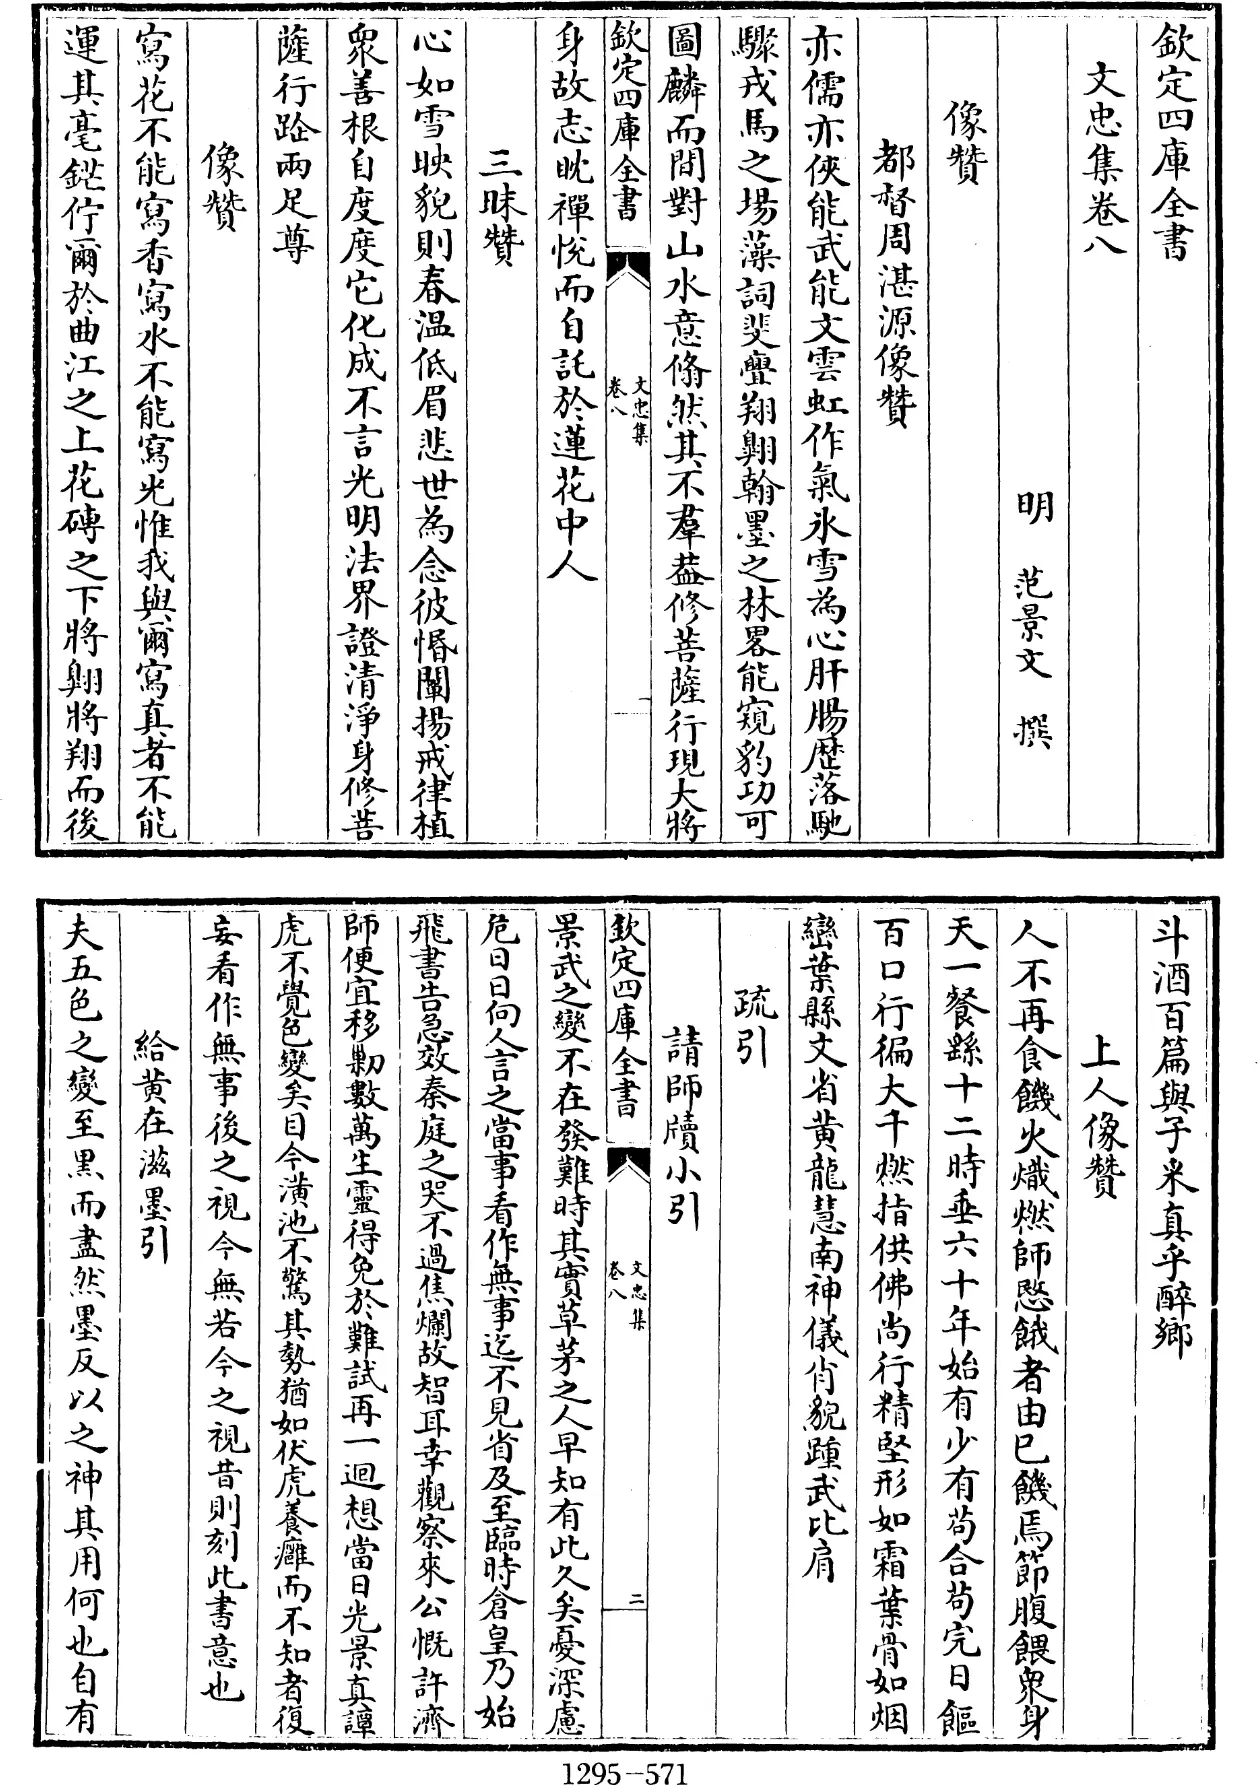 欽定四庫全書
文忠集卷八
明 范景文 撰
像贊
都督周湛源像贊
亦儒亦俠能武能文雲虹作氣氷雪為心肝腸歴落馳
驟戎馬之場藻詞斐亹翔翺翰墨之林畧能窺豹功可
圖麟而間對山水意翛然其不羣葢修菩薩行現大將
欽定四庫全書
文忠集
卷八
一
身故志眈禪悅而自託於蓮花中人
三昧贊
心如雪映貌則春温低眉悲世為念彼惛闡揚戒律植
衆善根自度度它化成不言光明法界證清淨身修菩
薩行跲兩足尊
像贊
寫花不能寫香寫水不能寫光惟我與爾寫真者不能
運其毫鋩佇爾於曲江之上花磚之下將翺將翔而後
斗酒百篇與子来真乎醉鄉
上人像贊
人不再食饑火熾燃師愍餓者由已饑焉節腹餵衆身
天一餐繇十二時垂六十年始有少有苟合苟完日饇
百口行徧大千燃指供佛尚行精堅形如霜葉骨如烟
巒葉縣文省黄龍慧南神儀肖貌踵武比肩
疏引
請師牘小引
欽定四庫全書
文忠集
卷八
二
景武之變不在發難時其實草茅之人早知有此久矣憂深慮
危日日向人言之當事看作無事迄不見省及至臨時倉皇乃始
飛書告急效秦庭之哭不過焦爛故智耳幸觀察來公慨許濟
師便宜移勦數萬生靈得免於難試再一迴想當日光景真譚
虎不覺色變矣目今潢池不驚其勢猶如伏虎養癰而不知者復
妄看作無事後之視今無若今之視昔則刻此書意也
給黄在滋墨引
夫五色之變至黒而盡然墨反以之神其用何也自有
1295—571